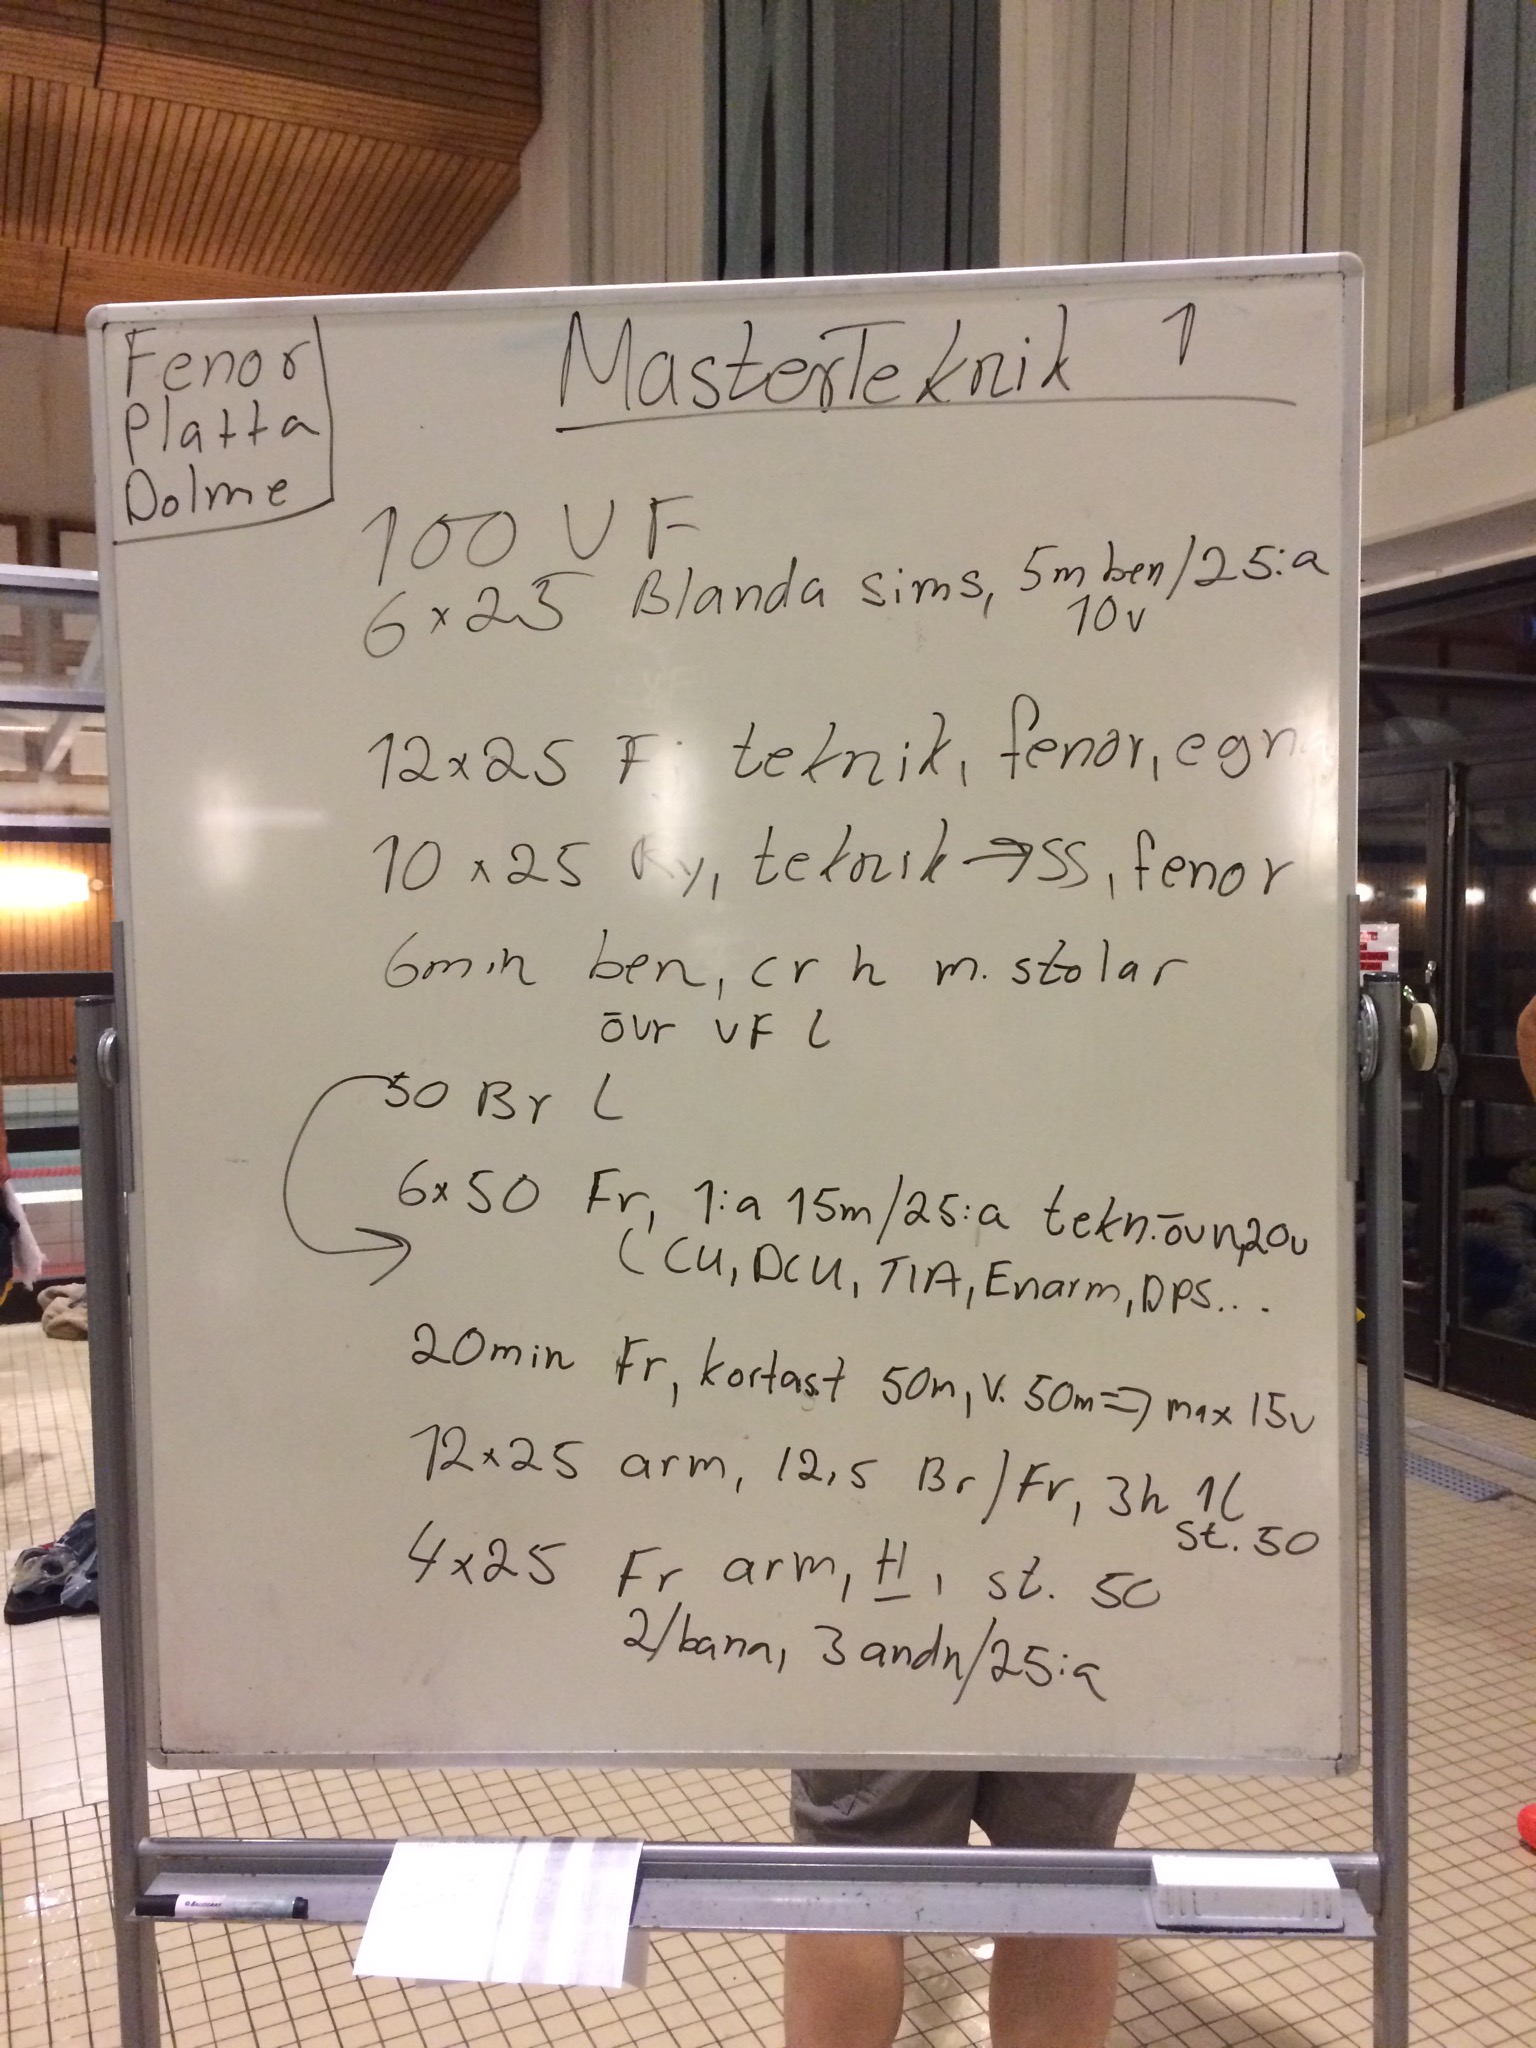 Fenor
Platta
Dolme
MasterTeknik 1
100 VF
6x25 Blanda sims, 5m ben/25:a
10v
12x25 Fj teknik, fenor, egn
10x25 Ry, teknik → SS, fenor
6min ben, cr h m. stolar
övr VF L
50 Br L
6x50 Fr, 1:a 15m/25:a tekn.övn, 20v
(CU, DCU, TIA, Enarm, DPS...
20min Fr, kortast 50m, v. 50m ⇒ max 15v
12x25 arm, 12,5 Br/Fr, 3h 1L
st. 50
4x25 Fr arm, H, st. 50
2/bana, 3 andn/25:a